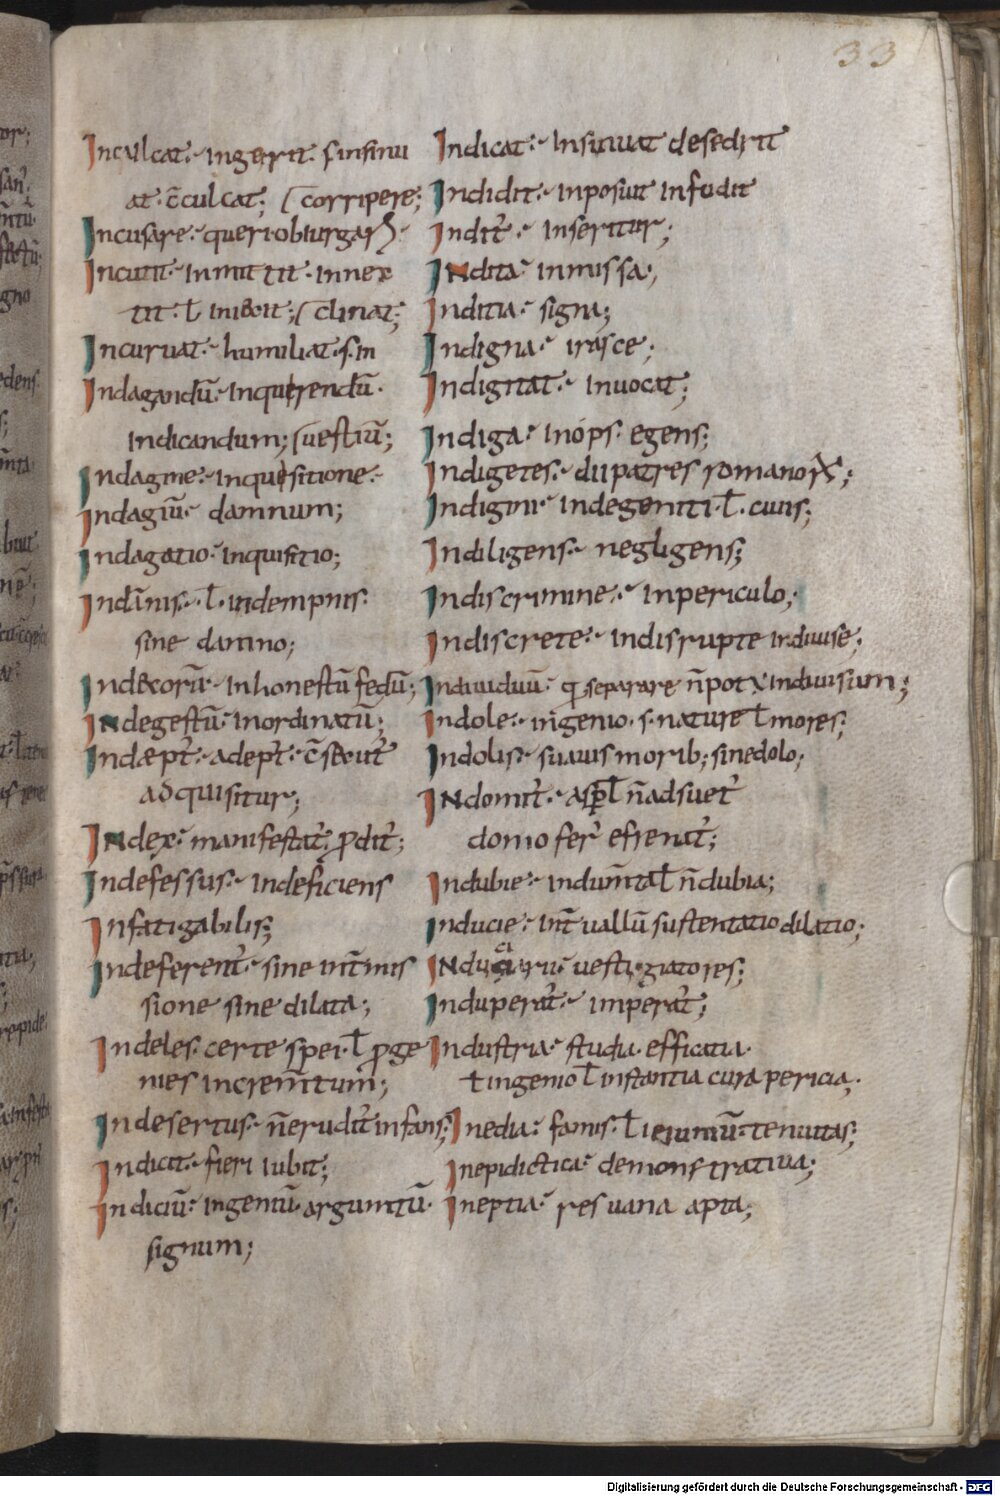 33
Inculcat· ingerit· s· insinu
at· c̄culcat; [corripere;
Incusare· queri· obiurgar̄·
Incutit· inmittit· innex
tit· ł inibuit; [clinat;
Incuruat· humiliat· s· in
Indagandū· inquirendū·
indicandum; [uestiū;
Indagine· inquisitione·
Indagiū· damnum;
Indagatio· inquisitio;
Indānis· ł· indempnis·
sine damno;
Indecorū· inhonestū fedū;
INdegestū· inordinatū;
Indæpt̄· adept̄· c̄secut̄
adquisitur;
INdex· manifestat̄· ꝓdit̄;
Indefessus· indeficiens
Infatigabilis;
Indeferent̄· sine int̄mis
sione sine dilata;
Indeles· certe spei· ł ꝓge
nies increm̄tum;
Indesertus· n̄erudit̄ infans;
Indicit· fieri iubit;
Indiciū· ingeniū· argum̄tū·
signum;
Indicat· Insinuat desedrit
Indidit· inposuit infudit
Indit̄· inseritur;
INdita· inmissa;
Inditia· signa;
Indigna· irasce;
Indignat· inuocat;
Indiga· inops· egens;
Indigetes· dii patres romanoꝝ;
Indigini· indegeniti· ł· cuius;
Indiligens· negligens;
Indiscrimine· inpericulo;
Indiscrete· indisrupte indiuise;
Indiuiduū· ꝙ separare n̄pot indiuisum;
Indole· ingenio· s· nature ł mores;
Indolis· suauis morib; sinedolo;
INdomit̄· asp̄ ł n̄adsuet̄
domo fer̄ efrenat̄;
Indubie· indum̄ta ł n̄dubia;
Inducie· int̄uallū sustentatio dilatio;
INduciarū· uestigiatores;
Induperat̄· imperat̄;
Industria· studia· efficatia·
t ingenio ł instantia cura pericia;
Inedia· famis· ł ieiuniū· tenuitas;
Inepidictica· demonstratiua;
Ineptia· res uana apta;
Digitalisierung gefördert durch die Deutsche Forschungsgemeinschaft - DFG